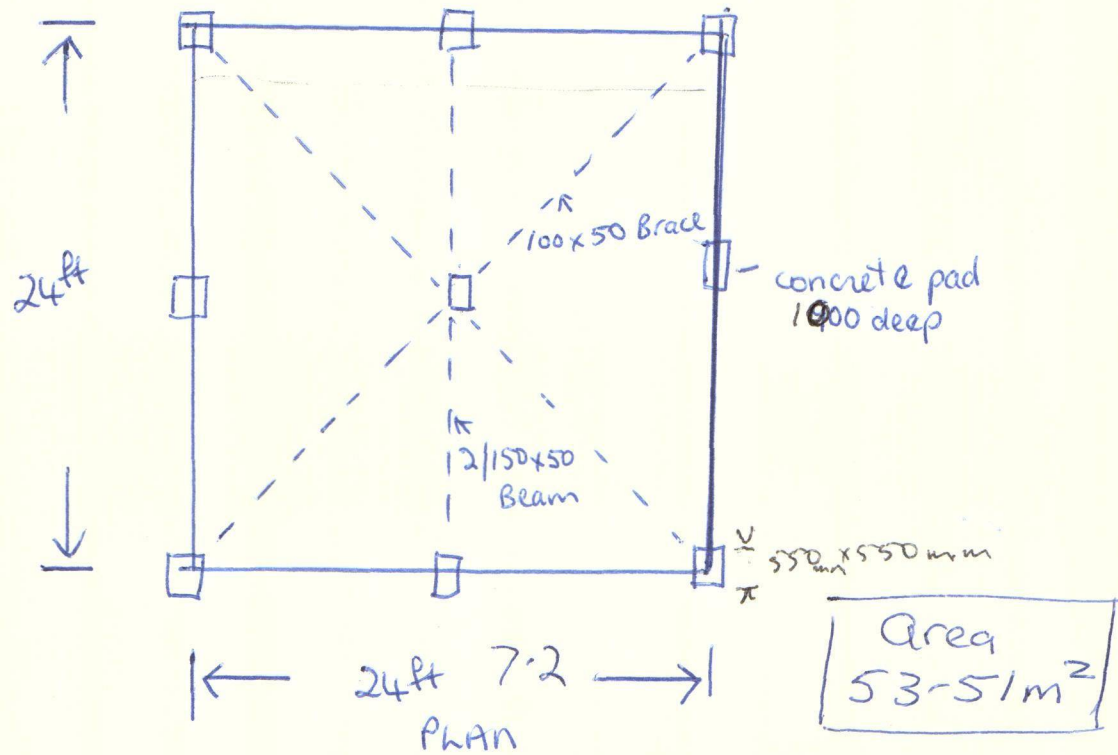 100x50 Brace
24ft
concrete pad
1000 deep
2/150x50
Beam
550mm x 550mm
24ft 7.2
PLAN
Area
53-51m²